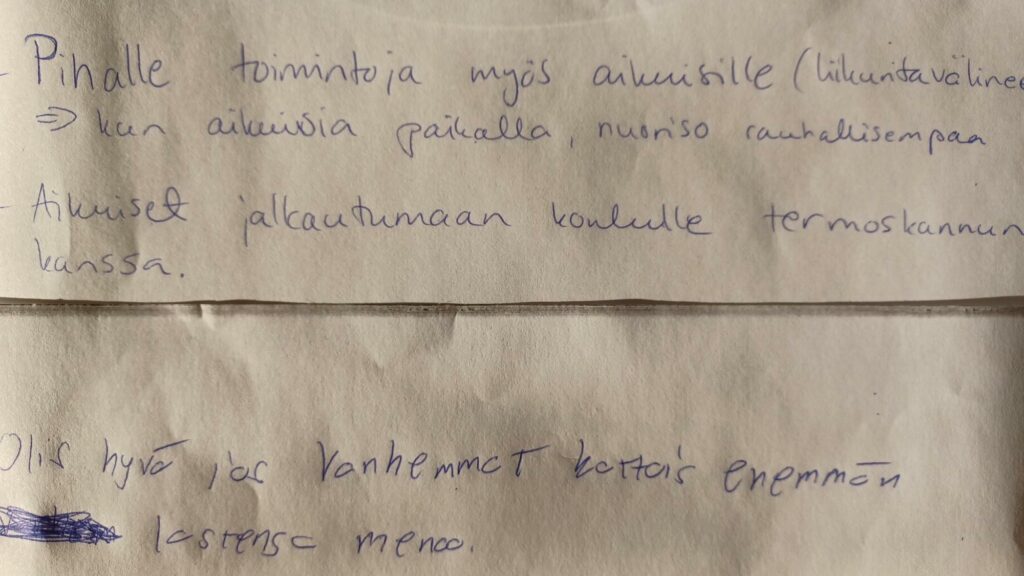 - Pihalle toimintoja myös aikuisille (liikuntavälinee
⇒ kun aikuisia paikalla, nuoriso rauhallisempaa
- Aikuiset jalkautumaan koululle termoskannun
kanssa.
Olis hyvä jos vanhemmat kattois enemmän
lastensa menoo.